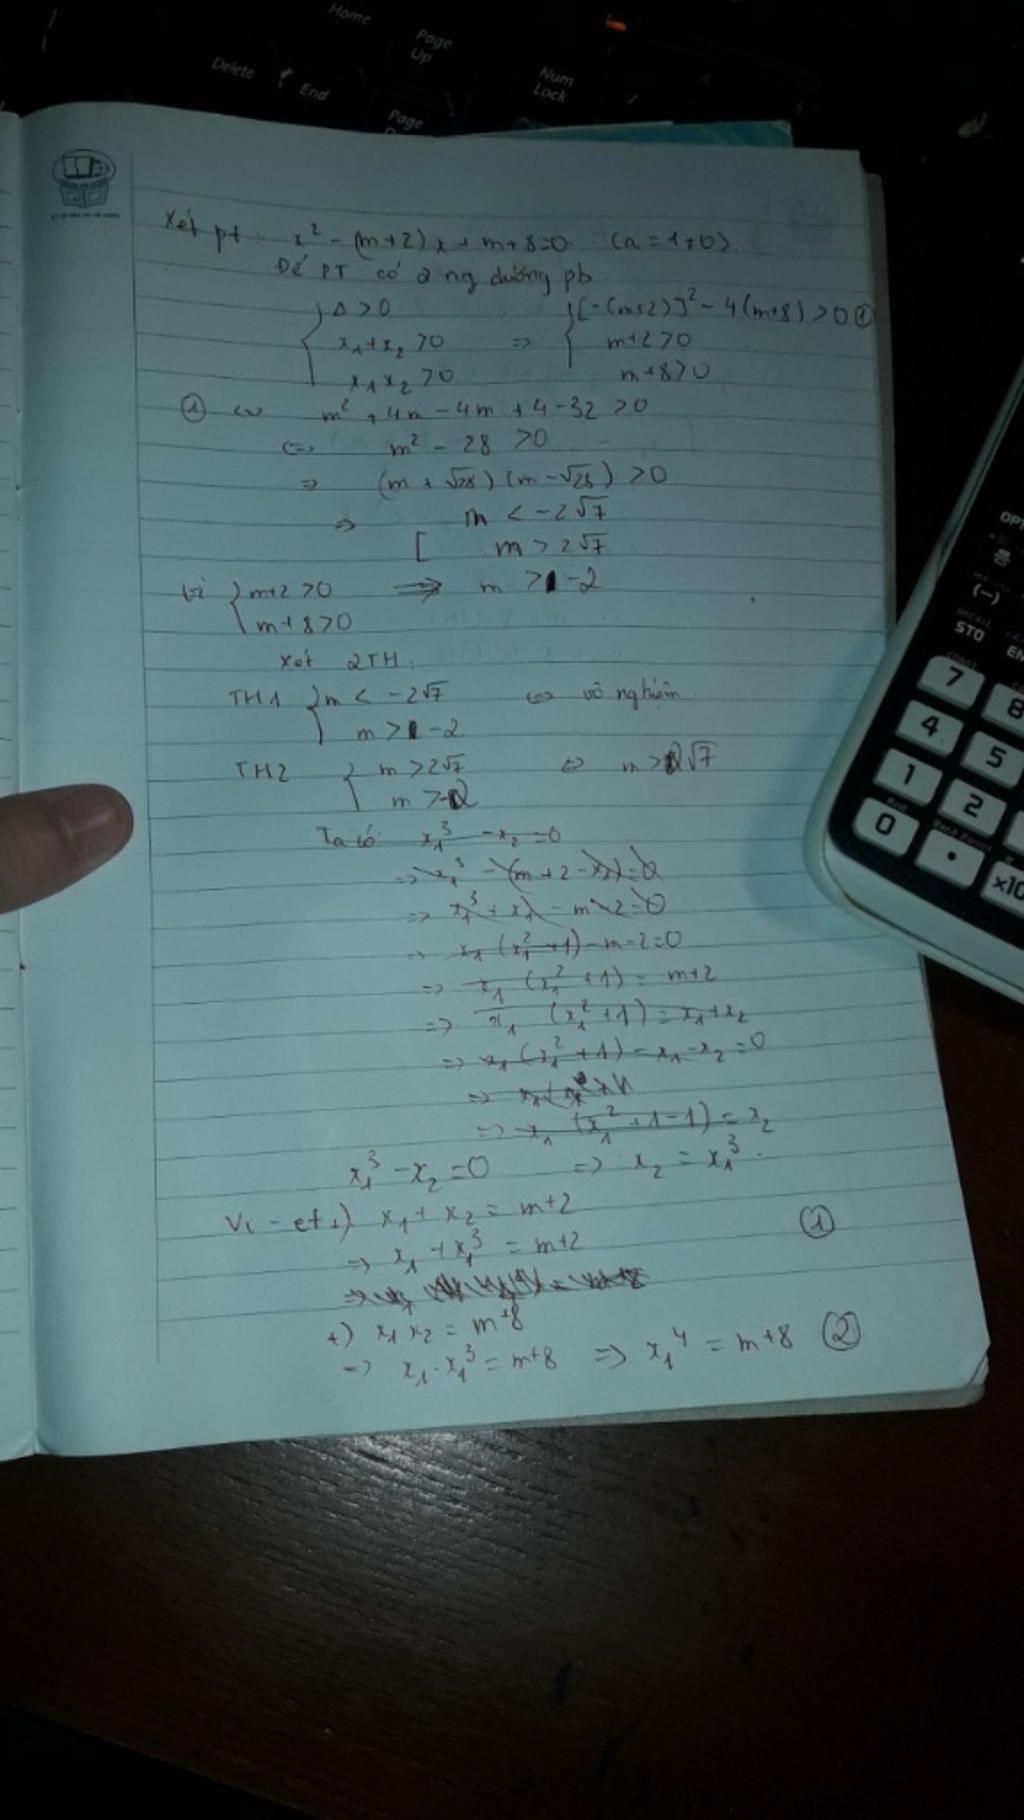 Home
Page Up
Delete
End
Num Lock
Page
Xét pt: x² - (m+2)x + m+8=0 (a=1≠0).
Để PT có 2 ng dương pb
{ Δ>0 => { [-(m+2)]² - 4(m+8) >0 ①
x₁+x₂ >0 m+2>0
x₁x₂ >0 m+8>0
① <=> m² + 4m - 4m + 4 - 32 >0
<=> m² - 28 >0
=> (m + √28) (m - √28) >0
=> [ m < -2√7
m > 2√7
Vì { m+2 >0 => m > -2
m+8>0
Xét 2TH:
TH1 { m < -2√7 <=> vô nghiệm.
m > -2
TH2 { m >2√7 <=> m >2√7
m >-2
Ta có: x₁³ - x₂ =0
=> x₁³ - (m+2-x₁)=0
=> x₁³ + x₁ - m-2=0
=> x₁ (x₁² +1) - m-2=0
=> x₁ (x₁² +1) = m+2
=> x₁ (x₁² +1) = x₁+x₂
=> x₁ (x₁² +1) - x₁ - x₂ =0
=> x₁ (x₁² +1-1) = x₂
x₁³ - x₂ =0 => x₂ = x₁³.
Vi-et +) x₁ + x₂ = m+2
=> x₁ + x₁³ = m+2 ①
+) x₁ x₂ = m+8
=> x₁.x₁³ = m+8 => x₁⁴ = m+8 ②
OPT
(−)
STO
7
8
4
5
1
2
0
.
×10